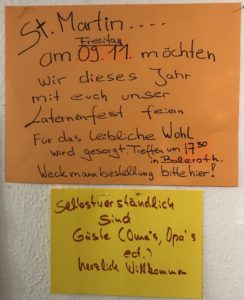 St. Martin....
Freitag
am 09.11. möchten
wir dieses Jahr
mit euch unser
Laternenfest feien
Für das leibliche Wohl
wird gesorgt Treffen um 17³⁰
in Boderoth.
Weckmannbestellung bitte hier!
Selbstverständlich
sind
Gäste (Oma's, Opa's
ect.)
herzlich Willkommen